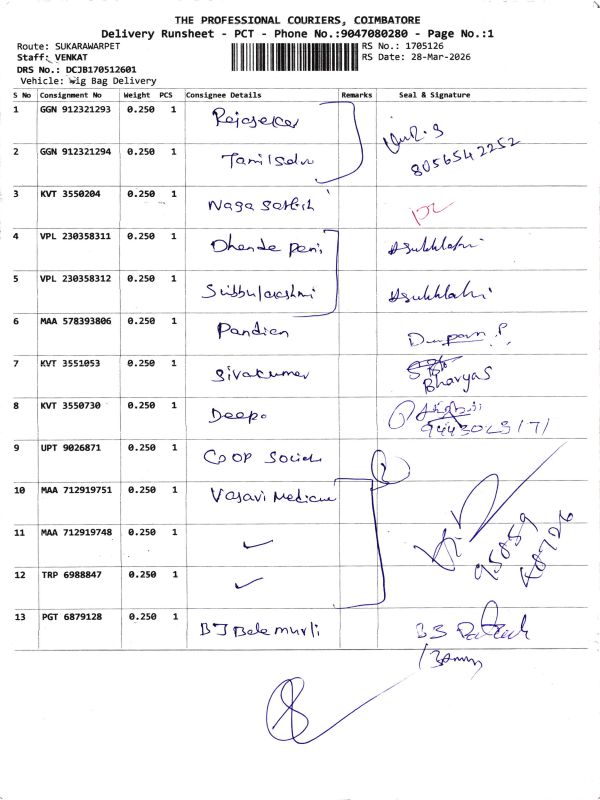 THE PROFESSIONAL COURIERS, COIMBATORE
Delivery Runsheet - PCT - Phone No.:9047080280 - Page No.:1
Route: SUKARAWARPET RS No.: 1705126
Staff: VENKAT RS Date: 28-Mar-2026
DRS No.: DCJB170512601
Vehicle: Wig Bag Delivery
S No Consignment No Weight PCS Consignee Details Remarks Seal & Signature
1 GGN 912321293 0.250 1 Rajasekar
2 GGN 912321294 0.250 1 Tamilselvi 8056542252
3 KVT 3550204 0.250 1 Naga Sathish
4 VPL 230358311 0.250 1 Dhandapani
5 VPL 230358312 0.250 1 Subbulakshmi
6 MAA 578393806 0.250 1 Pandian
7 KVT 3551053 0.250 1 Sivakumar BhavyaS
8 KVT 3550730 0.250 1 Deepa
9 UPT 9026871 0.250 1 COOP
10 MAA 712919751 0.250 1 Vasavi Medicine
11 MAA 712919748 0.250 1 ✓
12 TRP 6988847 0.250 1 ✓ 95859 48726
13 PGT 6879128 0.250 1 BJ Balamurli